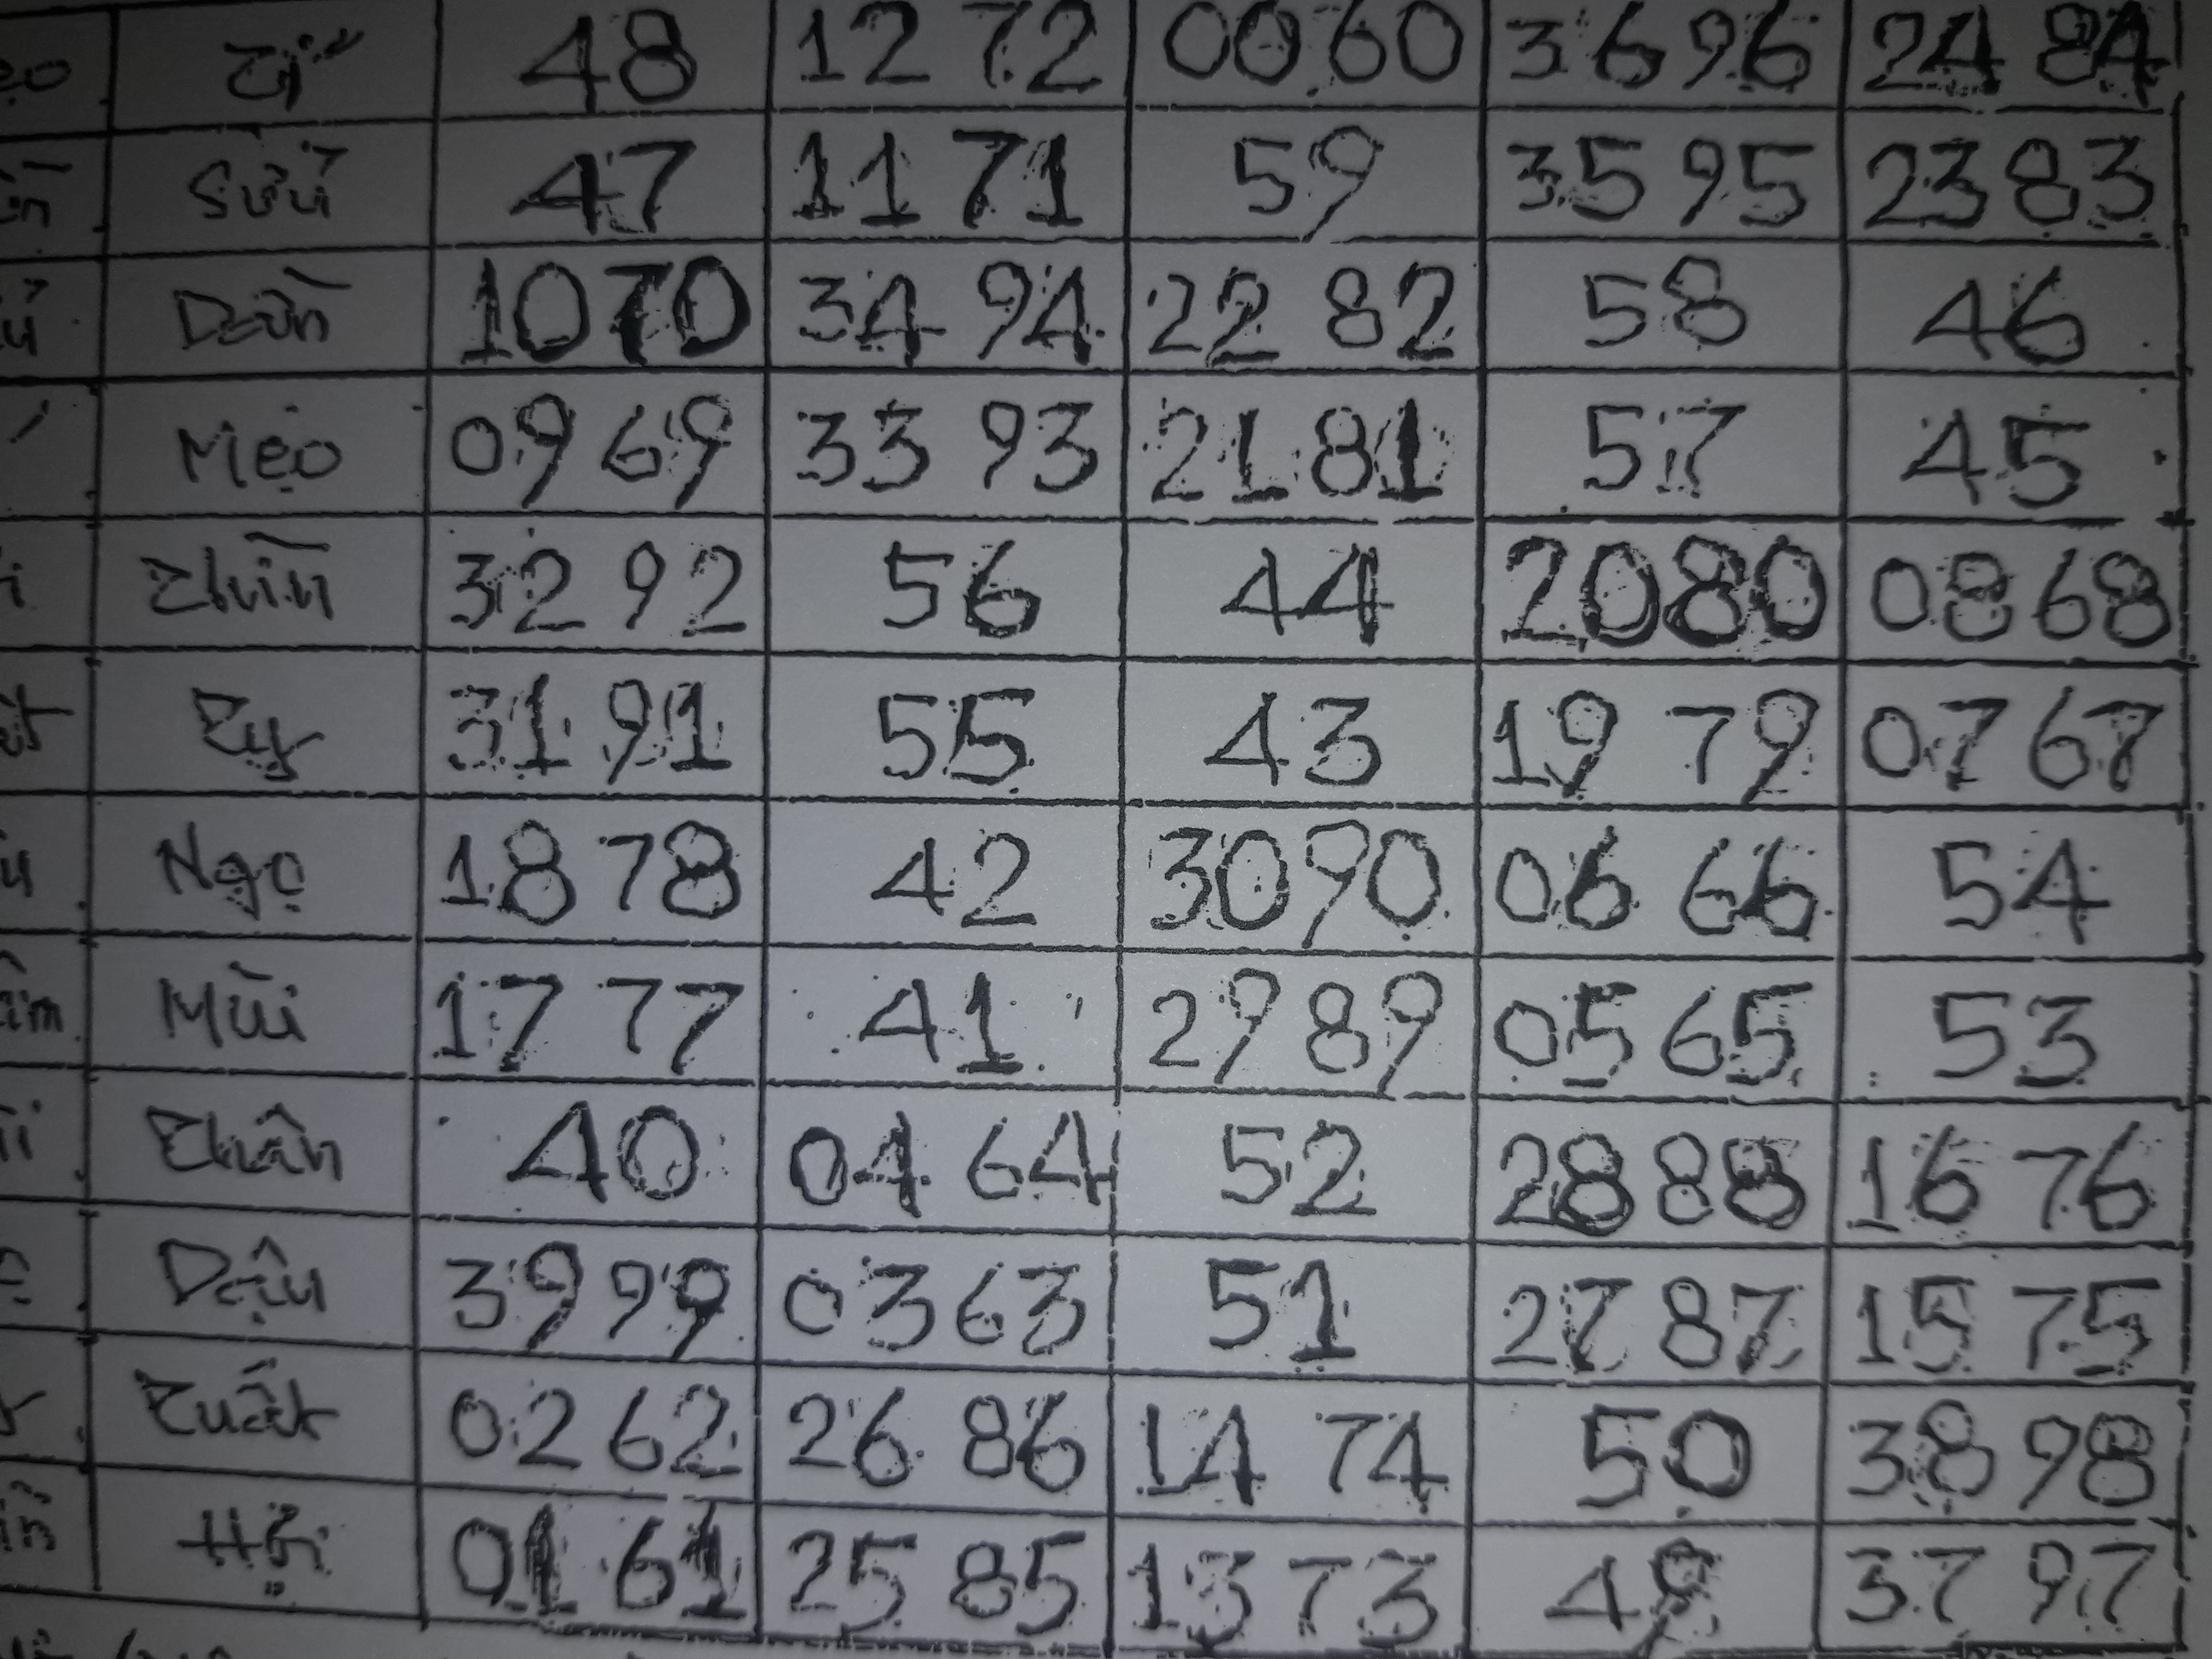 Tí 48 12 72 00 60 36 96 24 84
Sửu 47 11 71 59 35 95 23 83
Dần 10 70 34 94 22 82 58 46
Mẹo 09 69 33 93 21 81 57 45
Thìn 32 92 56 44 20 80 08 68
Tỵ 31 91 55 43 19 79 07 67
Ngọ 18 78 42 30 90 06 66 54
Mùi 17 77 41 29 89 05 65 53
Thân 40 04 64 52 28 88 16 76
Dậu 39 99 03 63 51 27 87 15 75
Tuất 02 62 26 86 14 74 50 38 98
Hợi 01 61 25 85 13 73 49 37 97